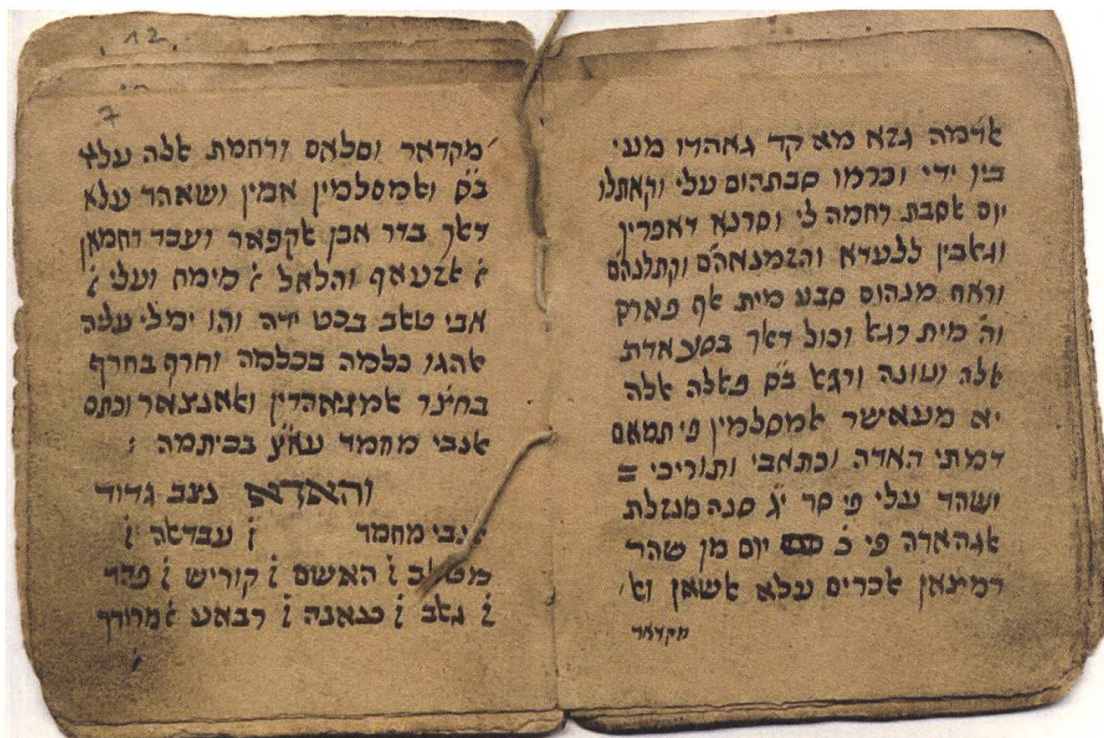 אדמה גזא מא קד גאהדו מעי
בין ידי וכרמו סבתהום עלי וקאתלו
יום אסבת רחמה לי וסרנא דאכרין
וגאבין ללעדא והזמנאהם וקתלנהם
וראח מנהום סבע מית אף פארס
וה מית רגא וכול דאך בסעאדת
אלה ועונה ורגא בס פאלה אלה
יא מעאישר אמסלמין פי תמאם
דמתי האדה וכתאבי ותוריכי =
ושהד עלי פי סר יג סנה מנזלת
אגהאדה פי כ יום מן שהר
רמצאן אכרים עלא אשאן וא
מקדאר
12
7
מקדאר וסלאם ורחמת אלה עלי
בס ואמסלמין אמין ושאהד עלא
דאך בדר אבן אקפאר ועבד רחמאן
ן אזעאף והלאל ן מימה ועלי ן
אבי טאב בכט ידה והו ימלי עליה
אהגו כלמה בכלמה וחרף בחרף
בחצר אמגאהדין ואאנצאר וכתם
אנבי מחמד עאץ בכיתמה :
והאדא נצב גדוד
אנבי מחמד ן עבדאה ן
מטאב ן האשם ן קוריש ן פהר
ן גאב ן כנאנה ן רבאע אמרודך